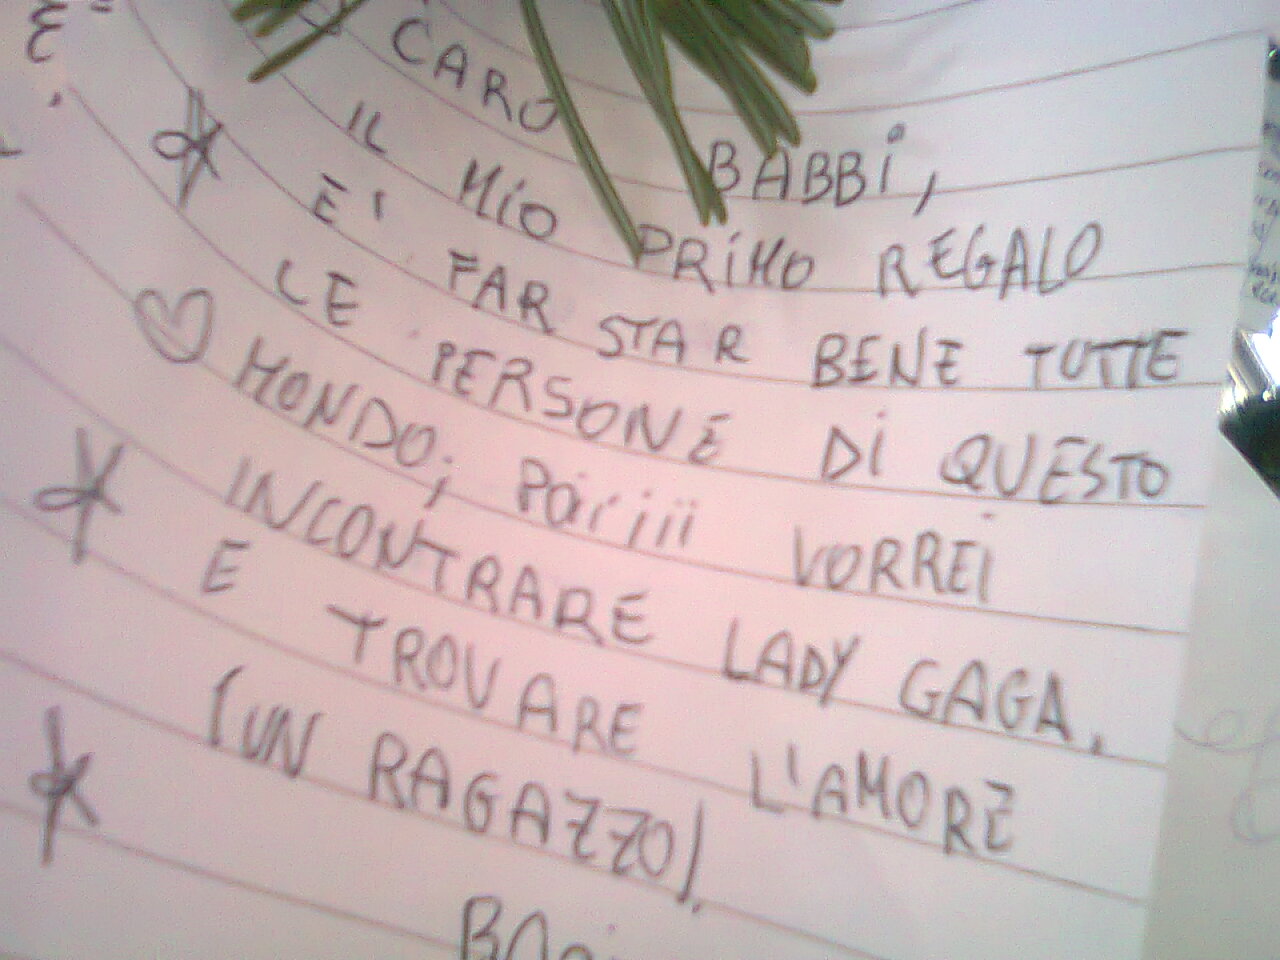 CARO BABBI,
IL MIO PRIMO REGALO
E' FAR STAR BENE TUTTE
LE PERSONE DI QUESTO
MONDO; Poiiii VORREI
INCONTRARE LADY GAGA,
E TROVARE L'AMORE
(UN RAGAZZO).